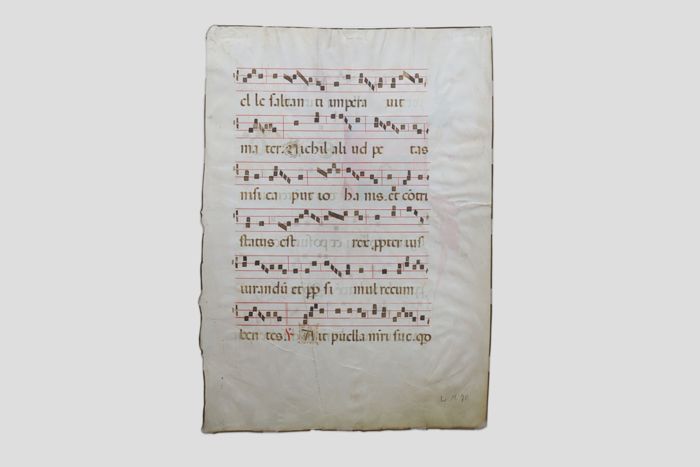 el le saltan ti impera uit
ma ter: Nichil ali ud pe tas
nisi ca put io han nis. et côtri
status est rex ꝓpter ius
iurandū et ꝓp si mul recum
ben tes ℣ Ait puella m̄ri sue. qd